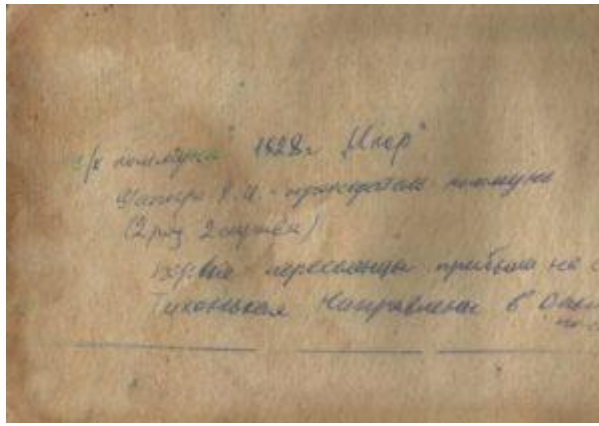 с/х коммуна 1928 г. „Икор"
Шапиро Х.И. - председатель коммуны
(2 ряд 2 справа)
первые переселенцы прибыли на с
Тихонькая Направлены в